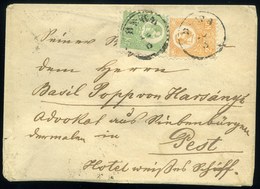 Seiner
dem Herrn
Basil Popp von Harsányi
Advokat aus Siebenbürgen
dermalen in
Pest
Hotel weißes Schiff